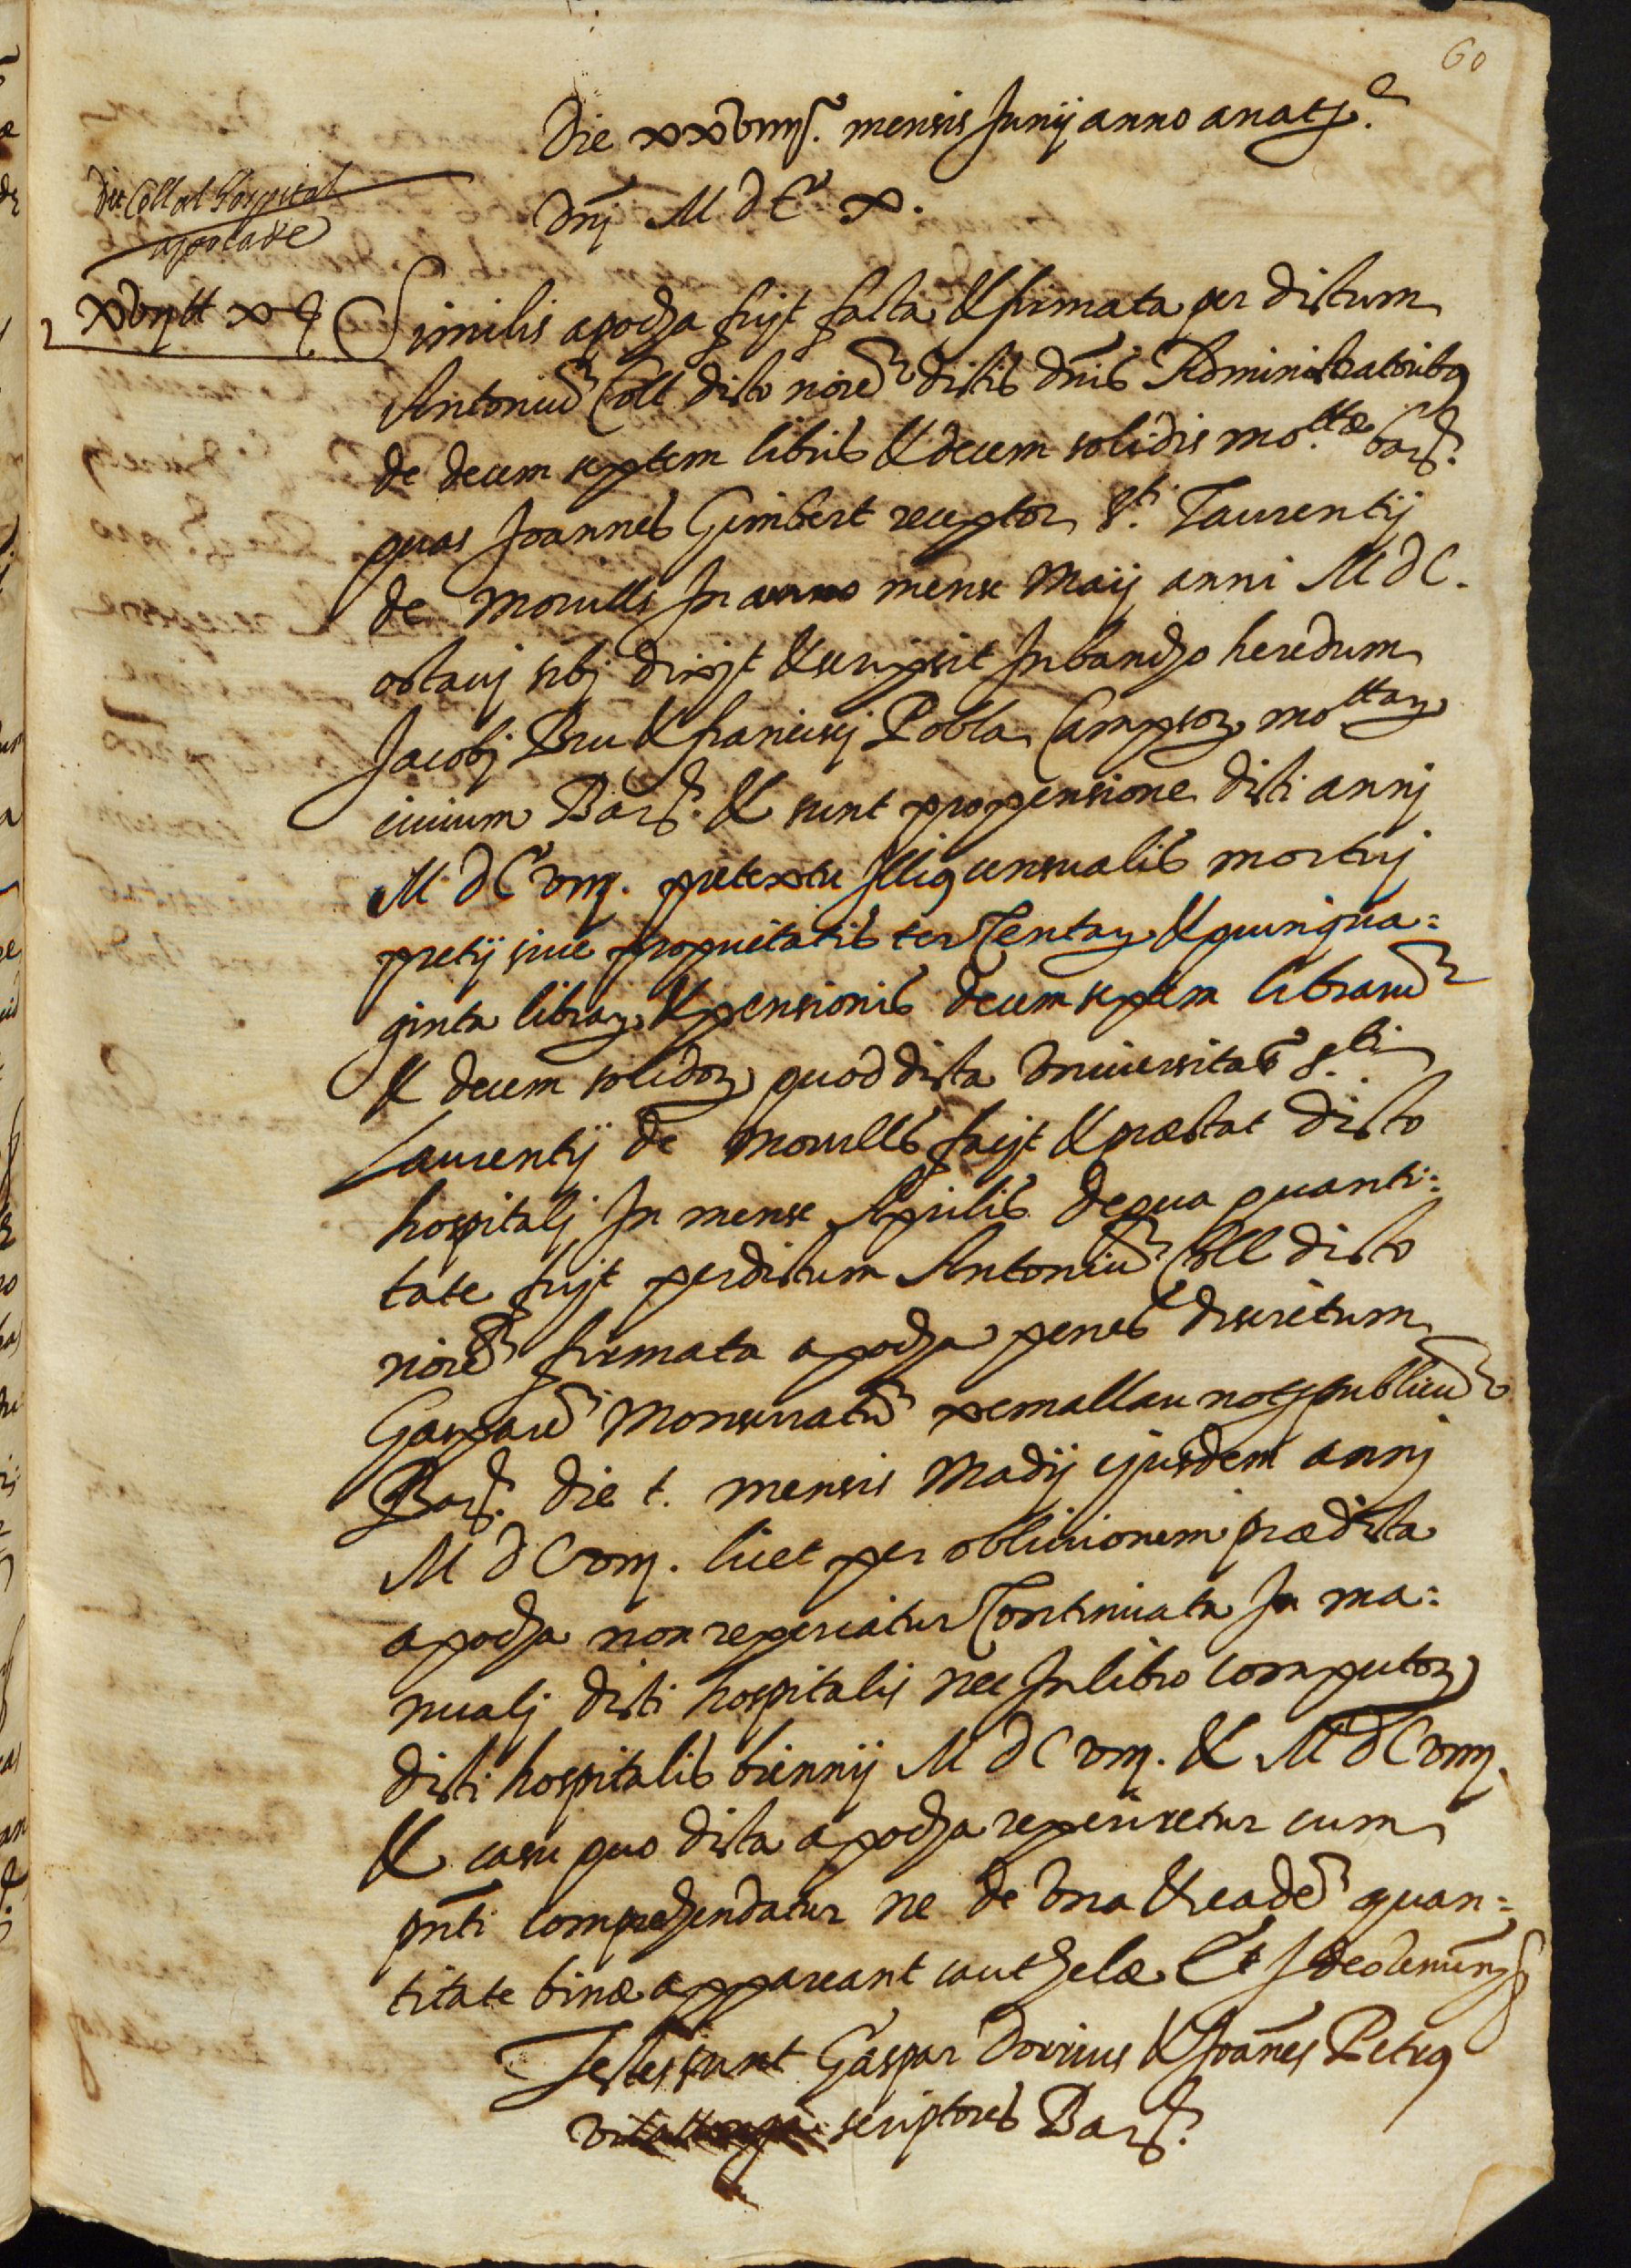 60
Die xxviiij. mensis Junij anno a natte.
Dnj MDCx.
Dit Coll al Hospital
apocade
xvij ll x s
Similis apocha fuit facta & firmata per dictum
Antoniũ Coll dicto noiẽ dictis dnis Administratoribꝯ
de decem septem libris & decem solidis mo.ttæ bar.
quas Joannes Gimbert receptor S.ti Laurentij
de Morulls In mense Maij anni MDC.
octauj sibj dixit & scripsit In bancho heredum
Jacobj Bru & francisej Pobla Campsoꝝ mo.ttaꝝ
ciuium Bar. & sunt pro pensione dicti annj
MDCviij. pretextu Illiꝯ censualis mortuj
pretij siue proprietatis tercentaꝝ & quinqua=
ginta libraꝝ & pensionis decem septem librarũ
& decem solidoꝝ quod dicta Vniuersitas S.ti
Laurentij de Morulls facit & præstat dicto
hospitalj In mense Aprilis de qua quanti=
tate fuit per dictum Antoniũ Coll dicto
noiẽ firmata apocha penes discretum
Gasparẽ Monserratũ xemallau not. publicũ
Bar. die t. mensis Madij ejusdem annj
MDCviij. licet per obliuionem prædicta
apocha non reperiatur Continuata In ma=
nualj dicti hospitalis nec In libro computoꝝ
dicti hospitalis biennij MDCviij. & MDCviiij.
& casu quo dicta apocha reperiretur cum
pnti comprehendatur ne de Vna & eadẽ quan=
titate binæ appareant cauthelæ Et Ideo
Testes sunt Gaspar Dorrius & Joãnes Petrꝯ
scriptores Bar.